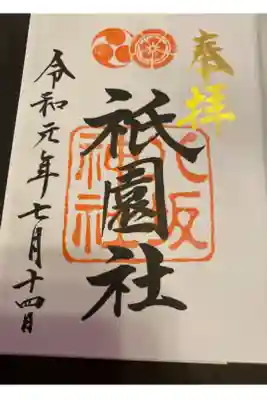 奉拝
八坂神社
祇園社
令和元年七月十四日